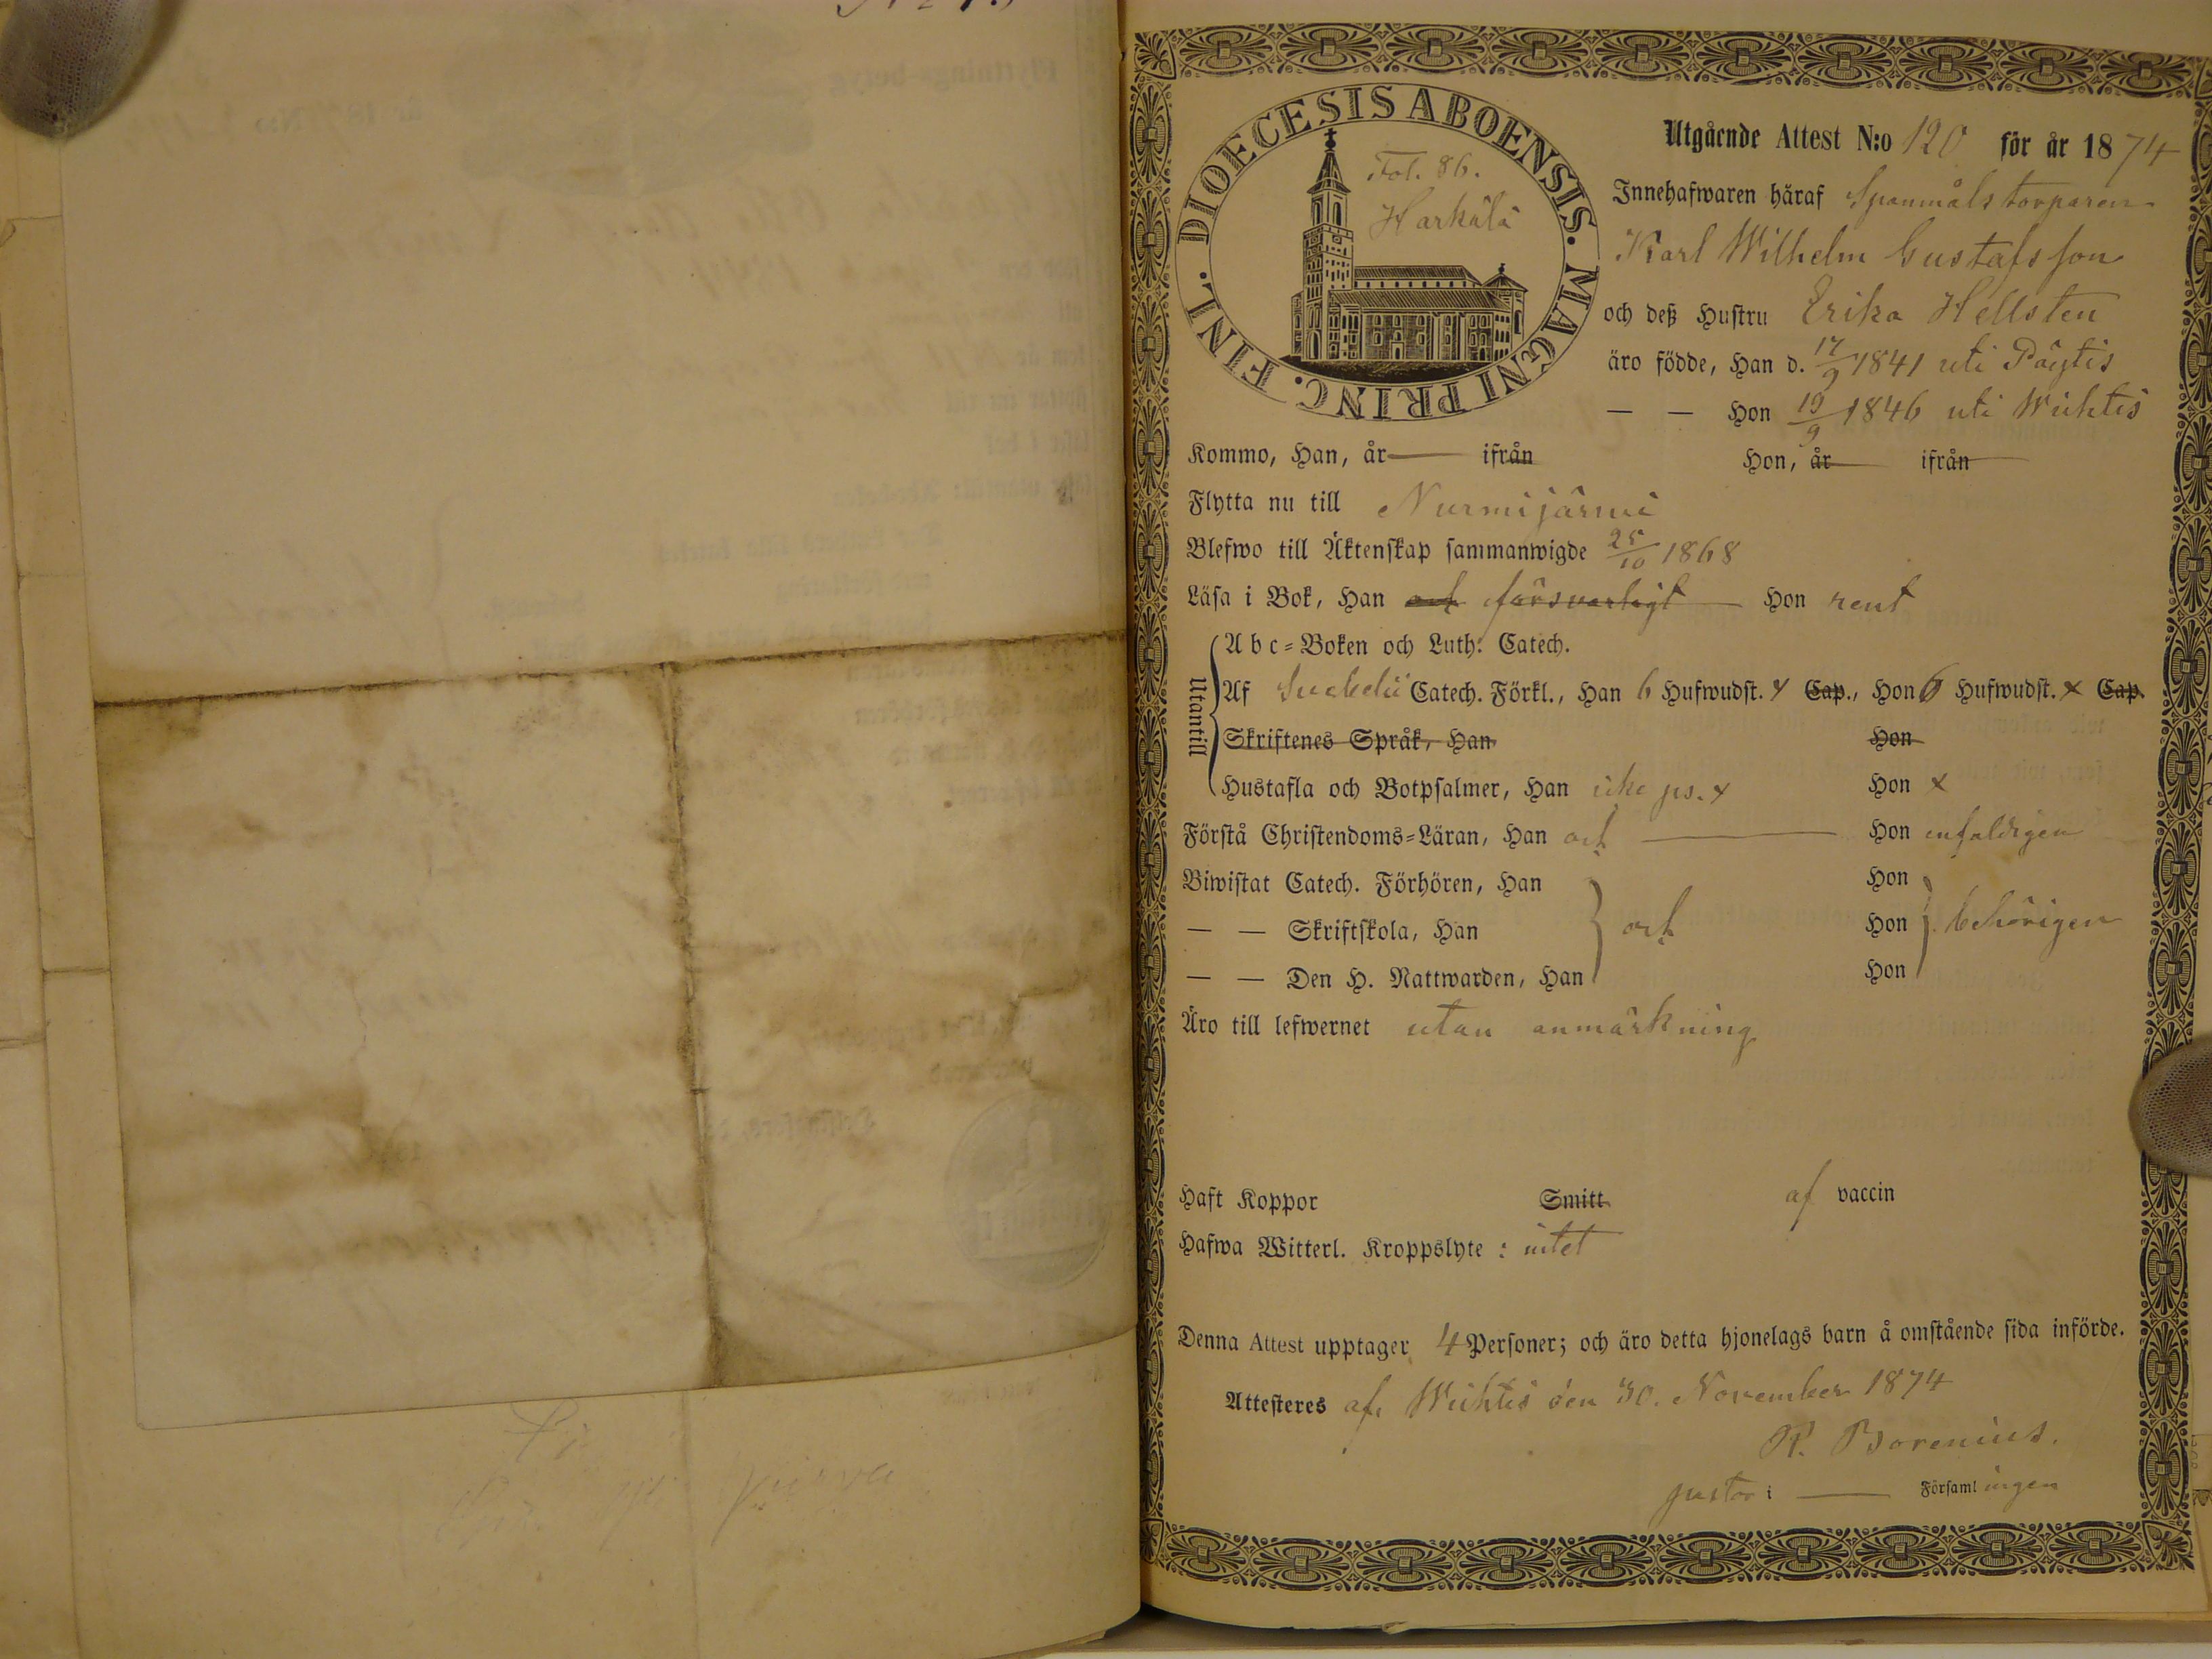 DIOECESIS ABOENSIS. MAGNI PRINC. FINL.
Fol. 86.
Harkälä
Utgående Attest N:o 120 för år 1874
Innehafwaren häraf Spanmåls torparen
Karl Wilhelm Gustafsson
och deß Hustru Erika Hellsten
äro födde, Han d. 17/9 1841 uti Pöytis
— — Hon 19/9 1846 uti Wichtis
Kommo, Han, år — ifrån Hon, år — ifrån
Flytta nu till Nurmijärwi
Blefwo till Äktenskap sammanwigde 25/10 1868
Läsa i Bok, Han och försvarligt — Hon rent
Utantill
Abc-Boken och Luth: Catech.
Af Catech. Förkl., Han 6 Hufwudst. x Cap., Hon 6 Hufwudst. x Cap.
Skriftenes Språk, Han Hon
Hustafla och Botpsalmer, Han icke ps. x Hon x
Förstå Christendoms-Läran, Han och — Hon enfaldigen
Biwistat Catech. Förhören, Han Hon
— — Skriftskola, Han och Hon behörigen
— — Den H. Nattwarden, Han Hon
Äro till lefwernet utan anmärkning
Haft Koppor Smitt af vaccin
Hafwa Witterl. Kroppslyte : intet
Denna Attest upptager 4 Personer; och äro detta hjonelags barn å omstående sida införde.
Attesteras af, Wichtis den 30. November 1874
R. Borenius.
pastor i — Församlingen